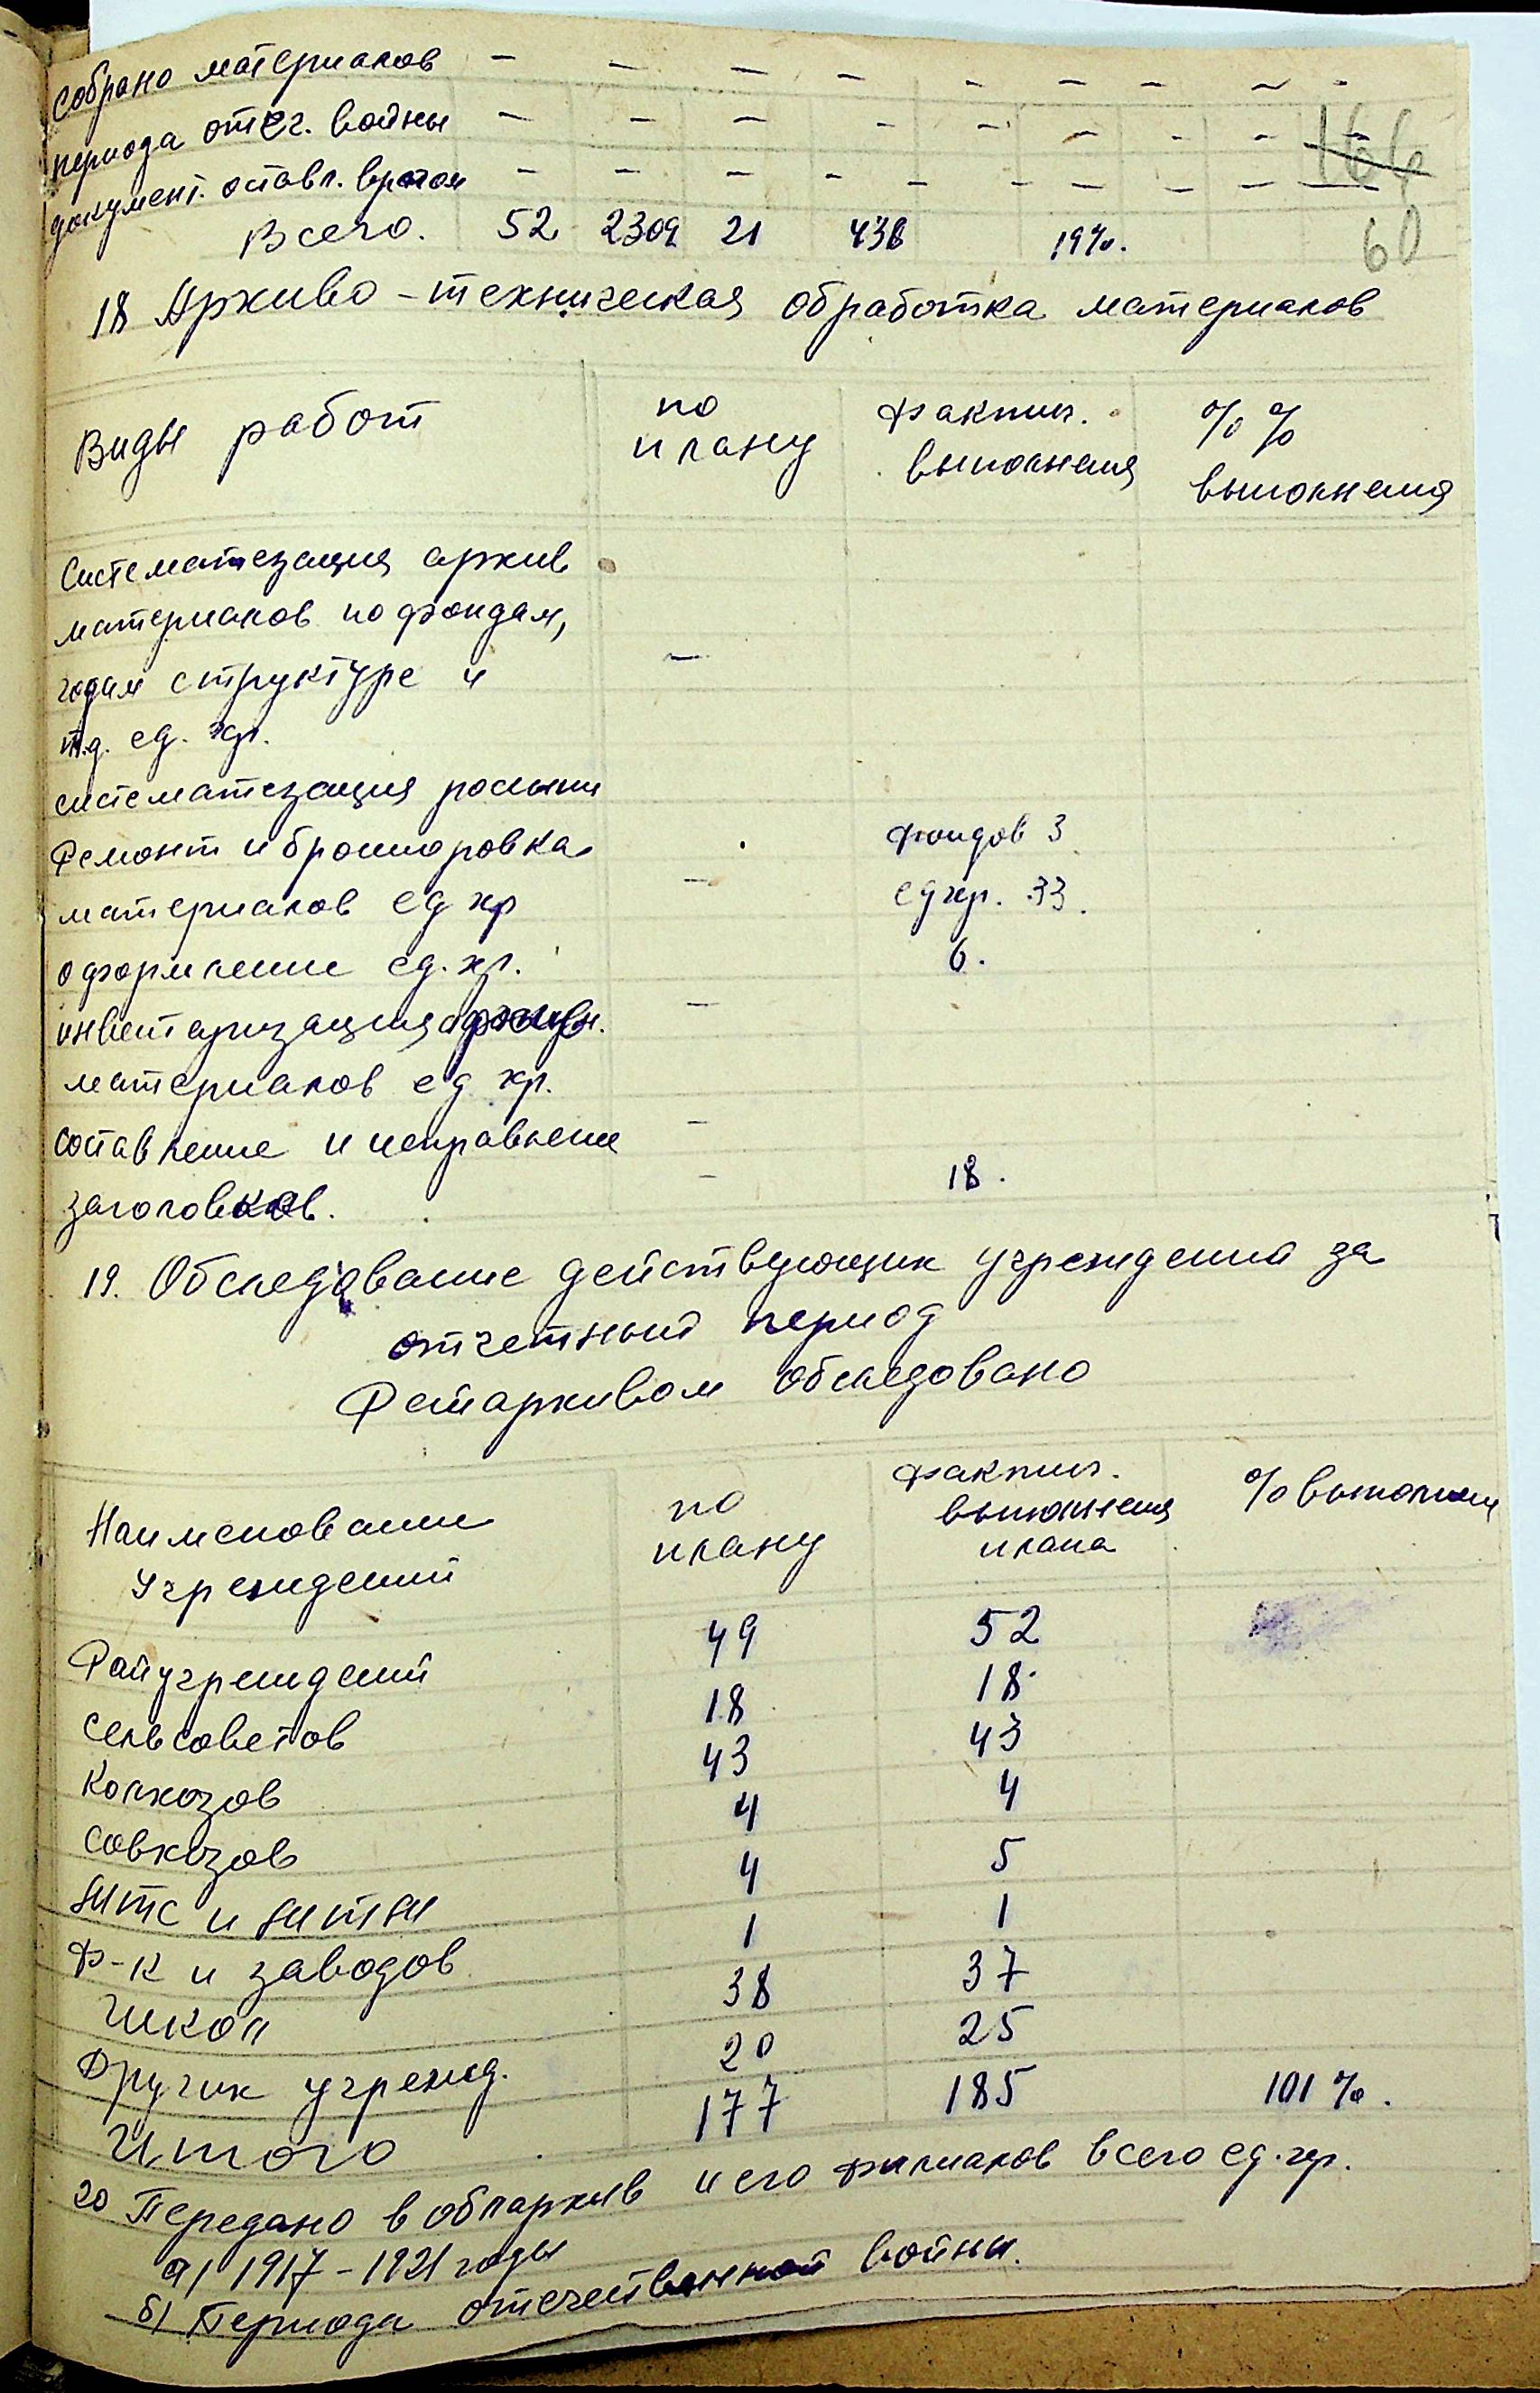 собрано материалов – – – – – – – – –
периода отеч. войны – – – – – – – – –
документ. оставл. врагом – – – – – – – – –
166
Всего. 52 2309 21 438 19%.
60
18 Архиво-техническая обработка материалов
Виды работ по плану фактич. выполнения %% выполнения
Систематезация архив
материалов по фондам,
годам структуре и –
т.д. ед. хр.
систематезация россыпи
Ремонт и брошюровка фондов 3
материалов ед хр – ед хр. 33.
оформление ед. хр. 6.
инвентаризация архивн. –
материалов ед хр.
составление и исправлени –
заголовков. – 18.
19. Обследование действующих учреждений за
отчетный период
Райархивом обследовано
Наименование учреждений по плану фактич. выполнения плана % выполнени
Райучреждений 49 52
сельсоветов 18 18
Колхозов 43 43
совхозов 4 4
МТС и МТМ 4 5
ф-к и заводов 1 1
Школ 38 37
Других учрежд. 20 25
Итого 177 185 101%.
20 Передано в облархив и его филиалов всего ед. хр.
а) 1917-1921 годы
б) Периода отечественной войны.